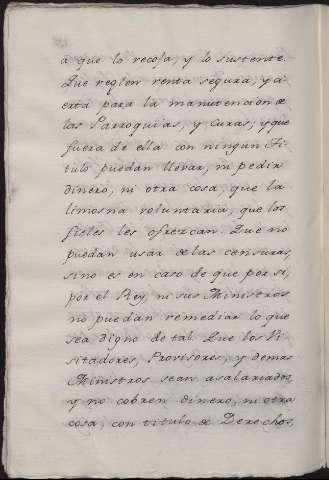 a que lo recoja, y lo sustente.
Que reglen renta segura, y ci
erta para la manutencion de
las Parroquias, y Curas, y que
fuera de ella con ningun Ti
tulo puedan llevar, ni pedir
dinero, ni otra cosa, que la
limosna voluntaria, que los
fieles les ofrezcan. Que no
puedan usar de las censuras,
sino es en caso de que por si,
por el Rey, ni sus Ministros
no puedan remediar lo que
sea digno de tal. Que los Vi
sitadores, Provisores, y demas
Ministros sean asalariados,
y no cobren dinero, ni otra
cosa, con titulo de Derechos,